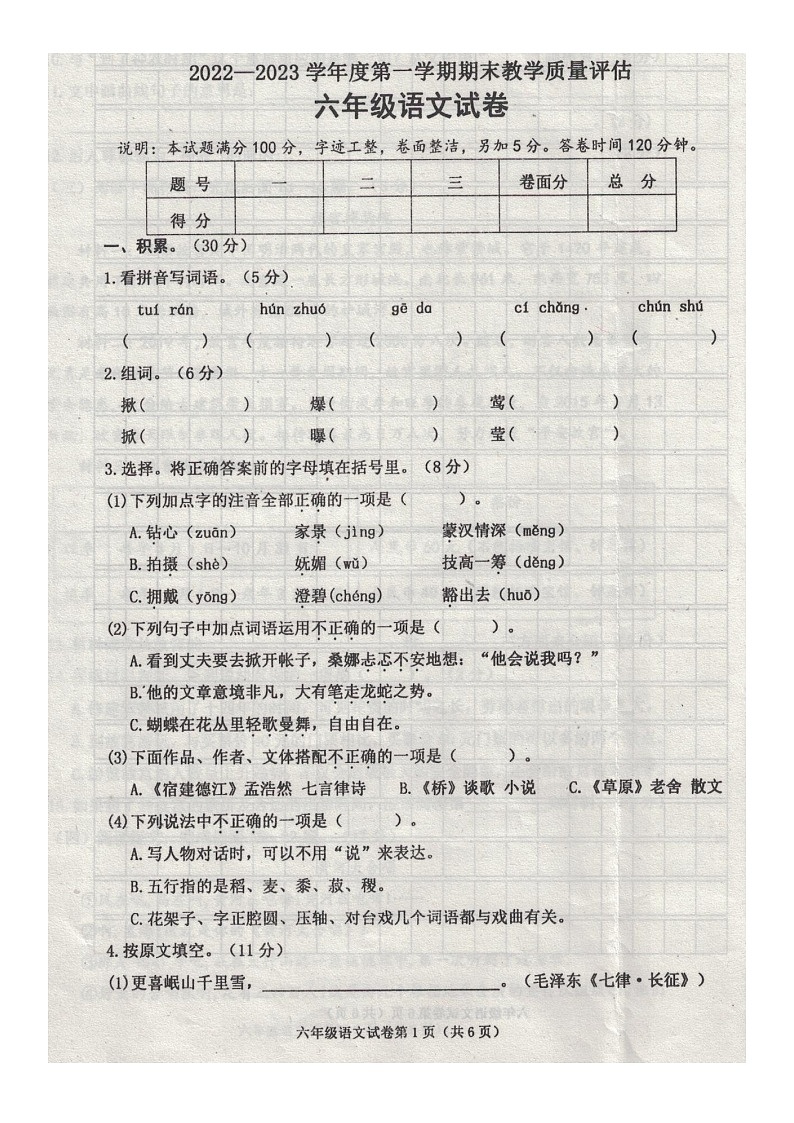 2022—2023学年度第一学期期末教学质量评估
六年级语文试卷
说明：本试题满分100分，字迹工整，卷面整洁，另加5分。答卷时间120分钟。
题 号 一 二 三 卷面分 总 分
得 分
一、积累。（30分）
1.看拼音写词语。（5分）
tuí rán hún zhuó gē da cí chǎng chún shú
（ ）（ ）（ ）（ ）（ ）
2.组词。（6分）
揪( ) 爆( ) 莺( )
掀( ) 曝( ) 莹( )
3.选择。将正确答案前的字母填在括号里。（8分）
(1)下列加点字的注音全部正确的一项是（ ）。
A.钻心（zuān） 家景（jìng） 蒙汉情深（měng）
B.拍摄（shè） 妩媚（wǔ） 技高一筹（děng）
C.拥戴（yōng） 澄碧(chéng) 豁出去（huō）
(2)下列句子中加点词语运用不正确的一项是（ ）。
A.看到丈夫要去掀开帐子，桑娜忐忑不安地想：“他会说我吗？”
B.他的文章意境非凡，大有笔走龙蛇之势。
C.蝴蝶在花丛里轻歌曼舞，自由自在。
(3)下面作品、作者、文体搭配不正确的一项是（ ）。
A.《宿建德江》孟浩然 七言律诗 B.《桥》谈歌 小说 C.《草原》老舍 散文
(4)下列说法中不正确的一项是（ ）。
A.写人物对话时，可以不用“说”来表达。
B.五行指的是稻、麦、黍、菽、稷。
C.花架子、字正腔圆、压轴、对台戏几个词语都与戏曲有关。
4.按原文填空。（11分）
(1)更喜岷山千里雪，____________________。（毛泽东《七律·长征》）
六年级语文试卷第1页（共6页）